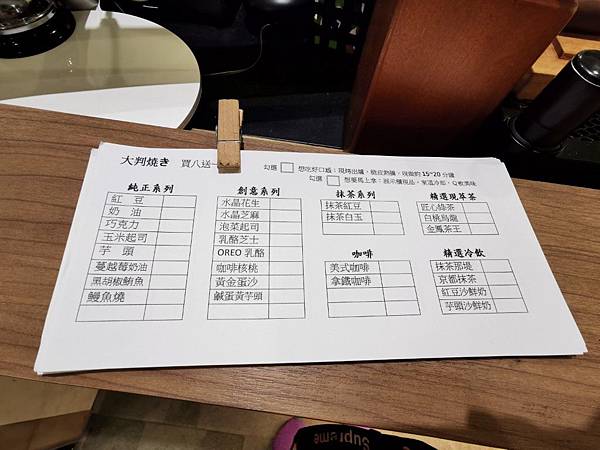 大判燒き 買八送一
勾選 想吃好口感：現烤出爐，脆皮熱餡，現做約 15~20 分鐘
勾選 想要馬上拿：展示櫃現品，室溫冷卻，Q軟美味
純正系列
紅豆
奶油
巧克力
玉米起司
芋頭
蔓越莓奶油
黑胡椒鮪魚
鰻魚燒
創意系列
水晶花生
水晶芝麻
泡菜起司
乳酪芝士
OREO 乳酪
咖啡核桃
黃金蛋沙
鹹蛋黃芋頭
抹茶系列
抹茶紅豆
抹茶白玉
咖啡
美式咖啡
拿鐵咖啡
精選現萃茶
匠心綠茶
白桃烏龍
金鳳茶王
精選冷飲
抹茶那堤
京都抹茶
紅豆沙鮮奶
芋頭沙鮮奶
Supreme